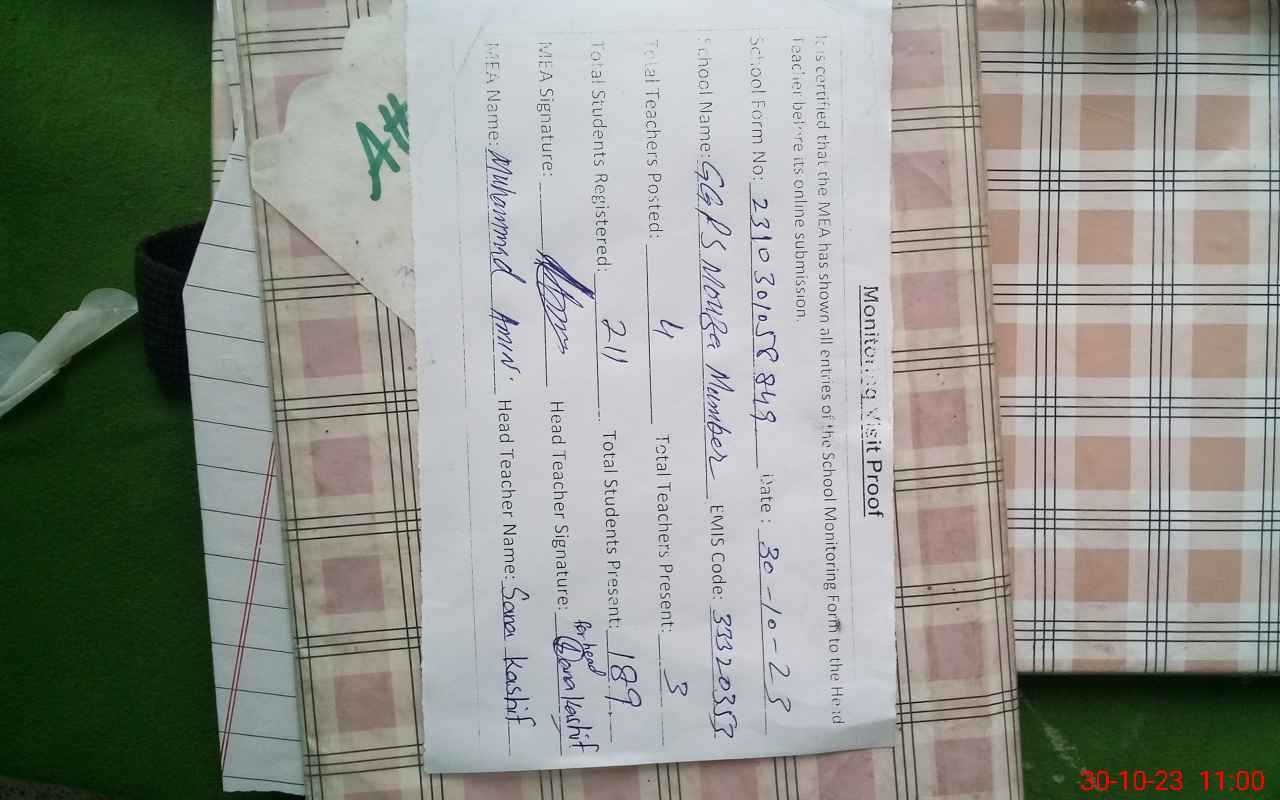 Monitoring Visit Proof
It is certified that the MEA has shown all entries of the School Monitoring Form to the Head
Teacher before its online submission.
School Form No: 2310301058849 Date: 30-10-23
School Name: GGPS Mouza Mumber EMIS Code: 33320353
Total Teachers Posted: 4 Total Teachers Present: 3
Total Students Registered: 211 Total Students Present: 189
for head
MEA Signature: Head Teacher Signature: Sana Kashif
MEA Name: Muhammad Amin. Head Teacher Name: Sana Kashif
30-10-23 11:00